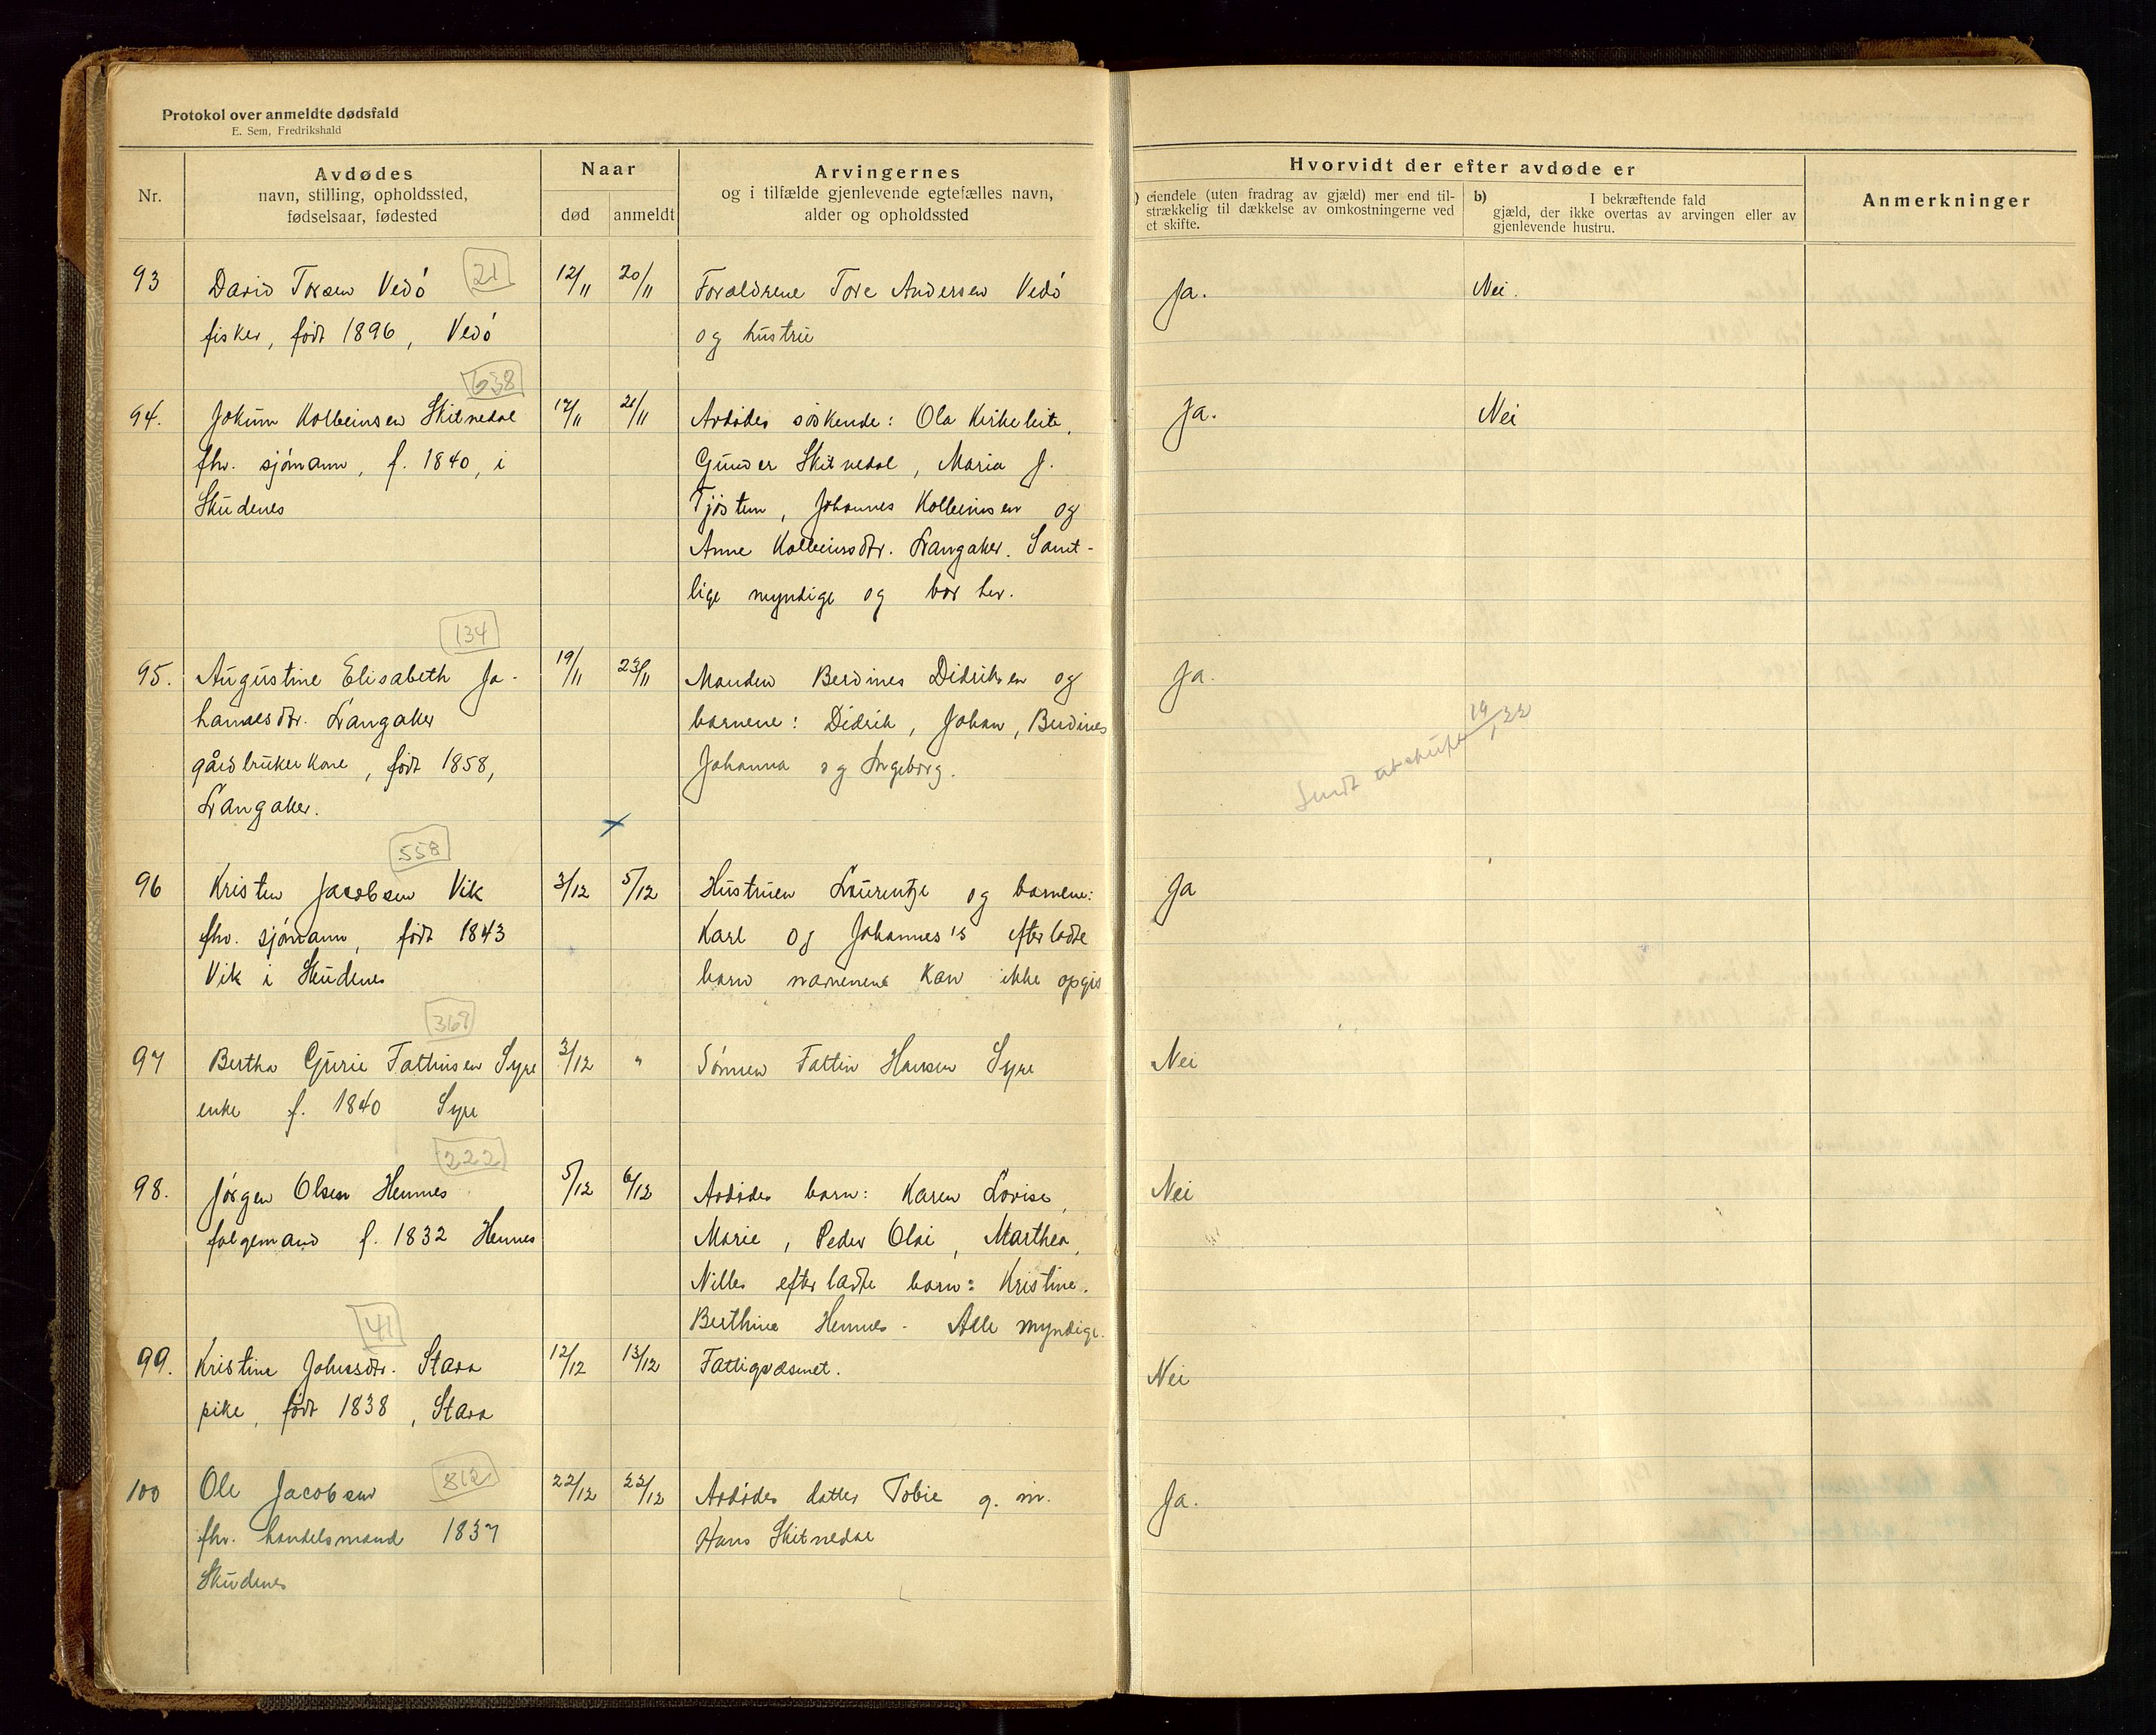 Protokol over anmeldte dødsfald
E. Sem, Fredrikshald
Nr.
Avdødes
navn, stilling, opholdssted,
fødselsaar, fødested
Naar
død
anmeldt
Arvingernes
og i tilfælde gjenlevende egtefælles navn,
alder og opholdssted
Hvorvidt der efter avdøde er
) eiendele (uten fradrag av gjæld) mer end til-
strækkelig til dækkelse av omkostningerne ved
et skifte.
b) I bekræftende fald
gjæld, der ikke overtas av arvingen eller av
gjenlevende hustru.
Anmerkninger
21
93 David Torsen Vedö 12/11 20/11 Forældrene Tore Andersen Vedö Ja. Nei.
fisker, født 1896, Vedö og hustru
638
94. Jokum Kolbeinsen Skitnedal 17/11 21/11 Avdödes söskende: Ola Kirkeleite, Ja. Nei
fhv. sjömann, f. 1840, i Gunder Skitnedal, Maria J.
Skudenes Tjösten, Johannes Kolbeinsen og
Anne Kolbeinsdtr. Langaker. Samt-
lige myndige og bor her.
134
95. Augustine Elisabeth Jo- 19/11 23/11 Manden Berdines Didriksen og Ja.
hannesdtr. Langaker barnene: Didrik, Johan, Berdines
gårdbrukerkone, født 1858, Johanna og Ingeborg.
Langaker.
Sendt 19/1 22
558
96 Kristen Jacobsen Vik 3/12 5/12 Hustruen Laurentze og barnene: Ja
fhv. sjömann, født 1843 Karl og Johannes's efterladte
Vik i Skudenes barn navnene kan ikke opgis
369
97 Bertha Gurie Fattinsen Syre 3/12 " Sönnen Fattin Hansen Syre Nei
enke f. 1840 Syre
222
98. Jörgen Olsen Hemnes 5/12 6/12 Avdödes barn: Karen Lovise, Nei
folgemand f. 1832 Hemnes Marie, Peder Olai, Marthea,
Nilles efterladte barn: Kristine.
Berthine Hemnes - Alle myndige.
41
99. Kristine Johnsdtr. Stava 12/12 13/12 Fattigvæsnet. Nei
pike, født 1838, Stava
812
100 Ole Jacobsen 22/12 22/12 Avdödes datter Tobie g. m. Ja.
fhv. handelsmand 1837 Hans Skitnedal
Skudenes